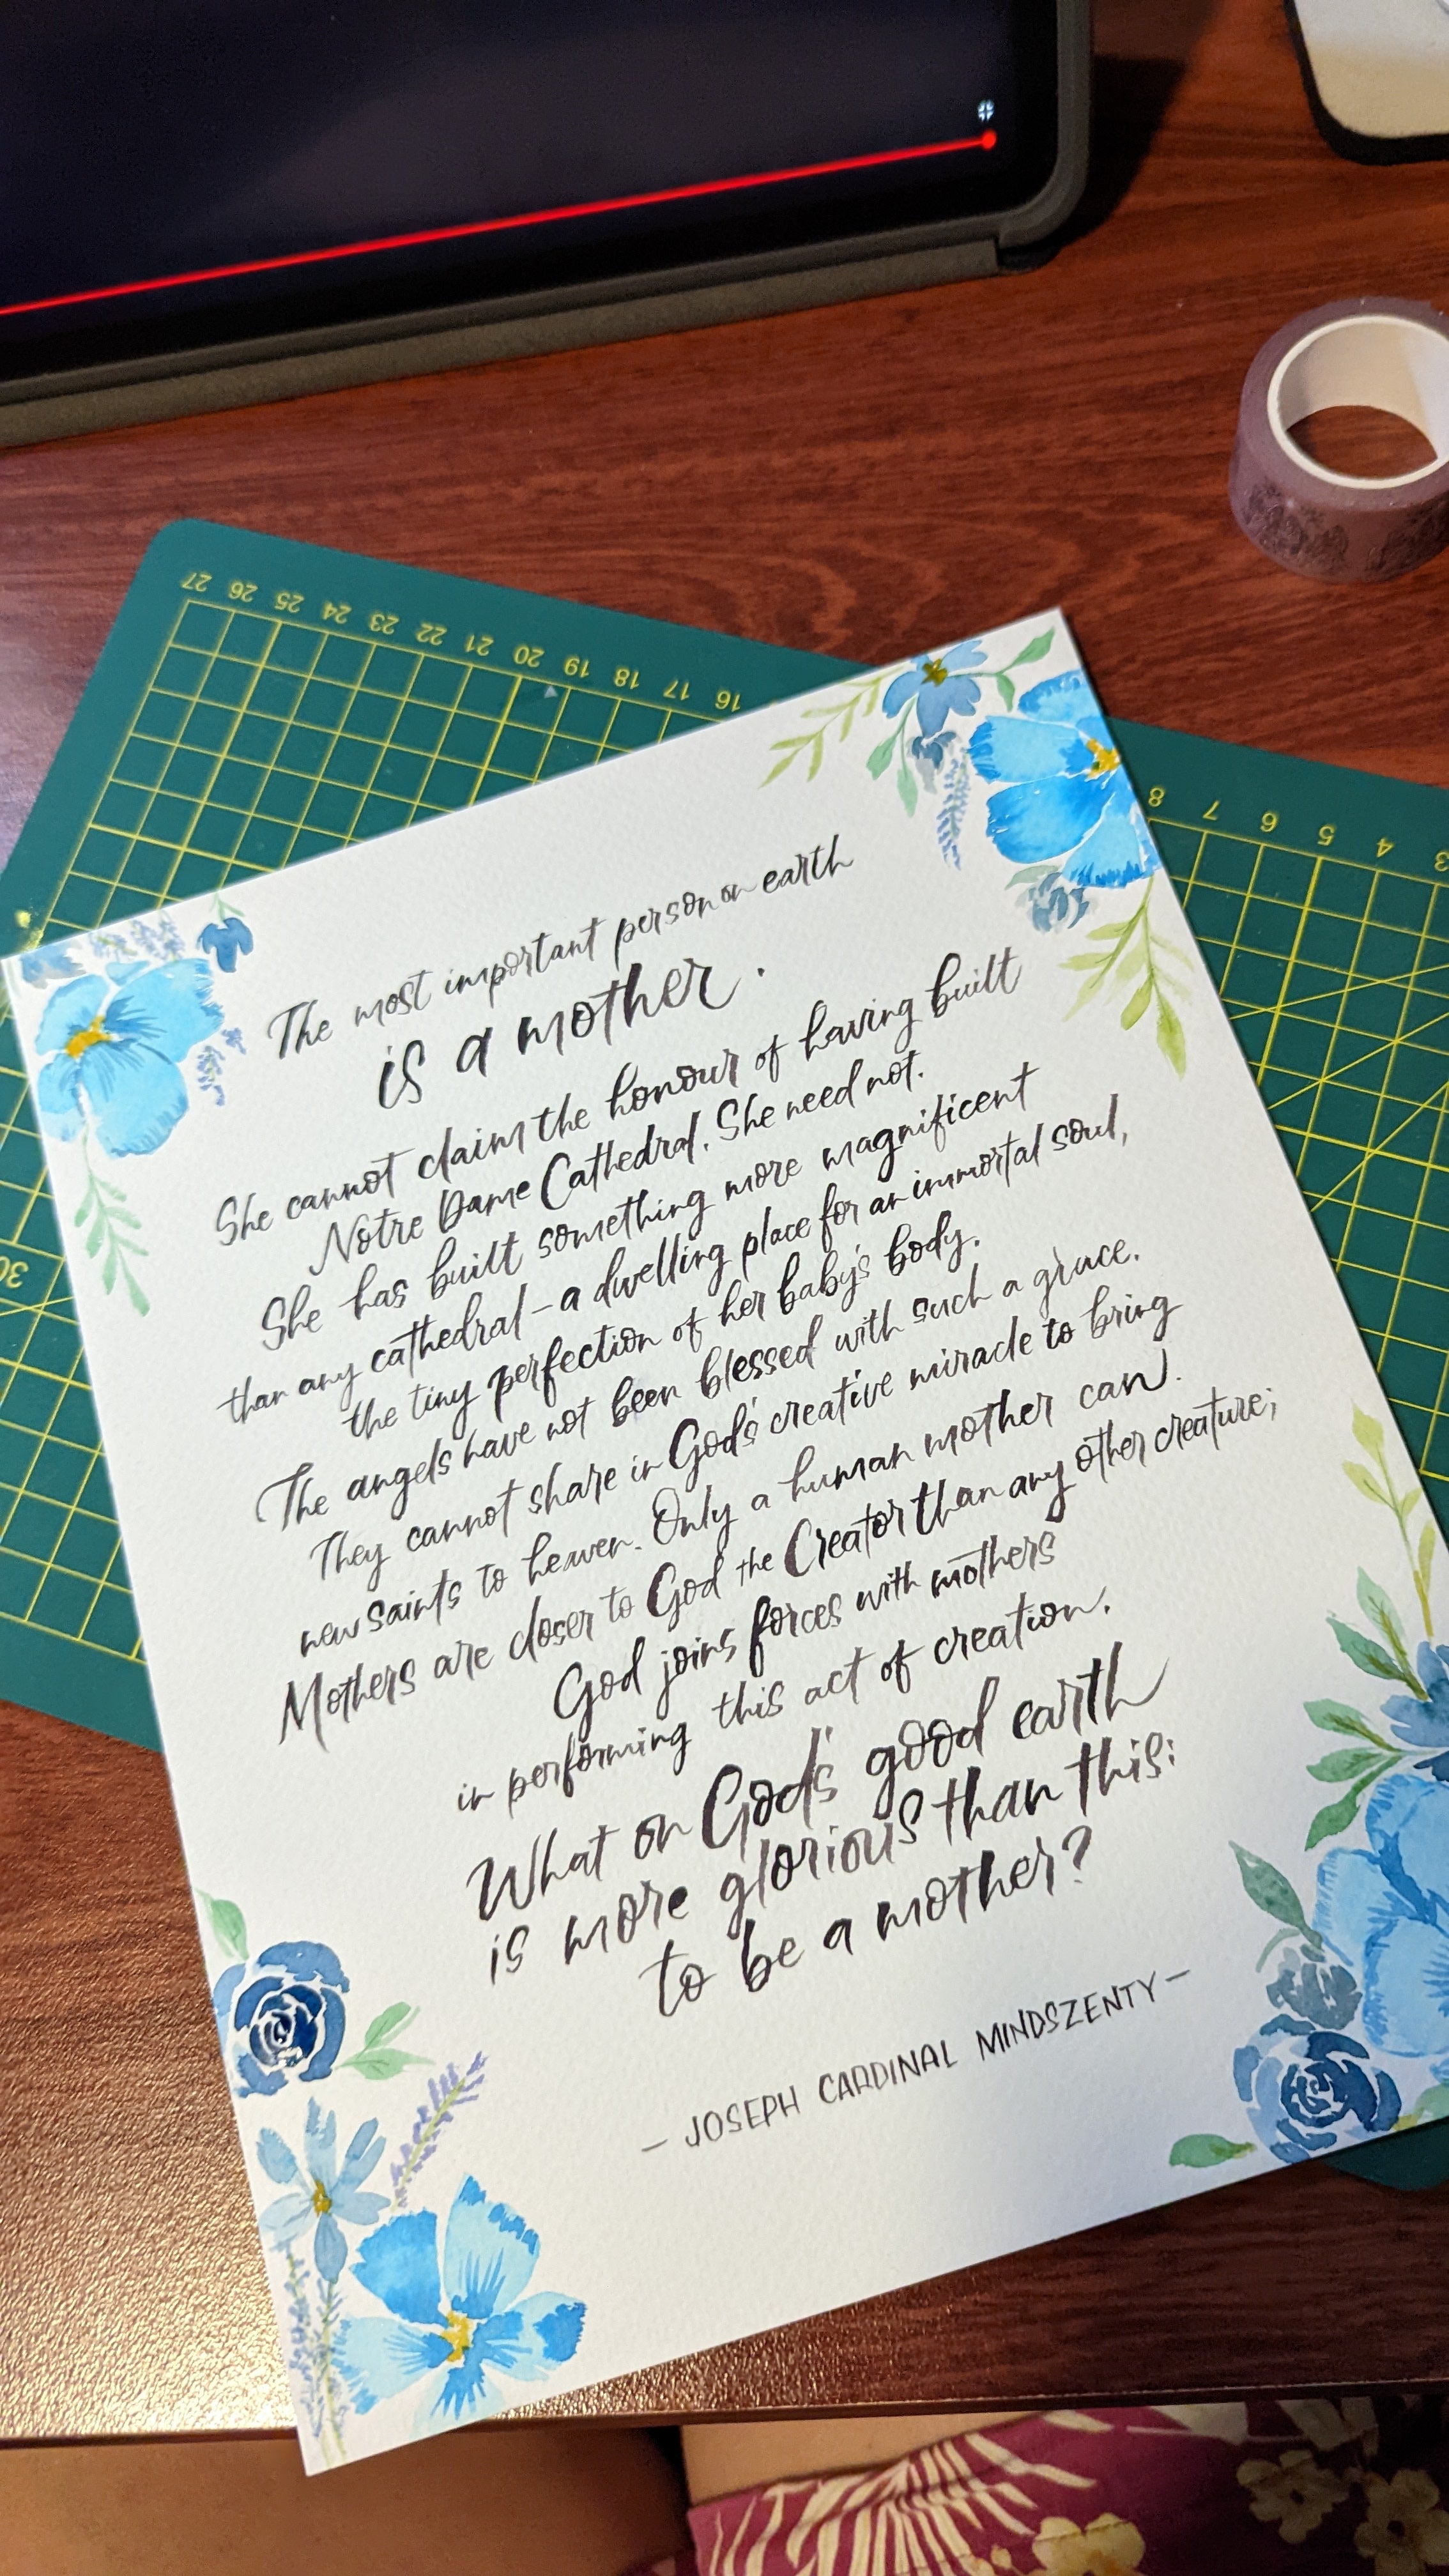 27 26 25 24 23 22 21 20 19 18 17 16
8 7 6 5 4 3
30
The most important person on earth
is a mother.
She cannot claim the honour of having built
Notre Dame Cathedral. She need not.
She has built something more magnificent
than any cathedral – a dwelling place for an immortal soul,
the tiny perfection of her baby's body.
The angels have not been blessed with such a grace.
They cannot share in God's creative miracle to bring
new saints to heaven. Only a human mother can.
Mothers are closer to God the Creator than any other creature;
God joins forces with mothers
in performing this act of creation.
What on God's good earth
is more glorious than this:
to be a mother?
– JOSEPH CARDINAL MINDSZENTY –